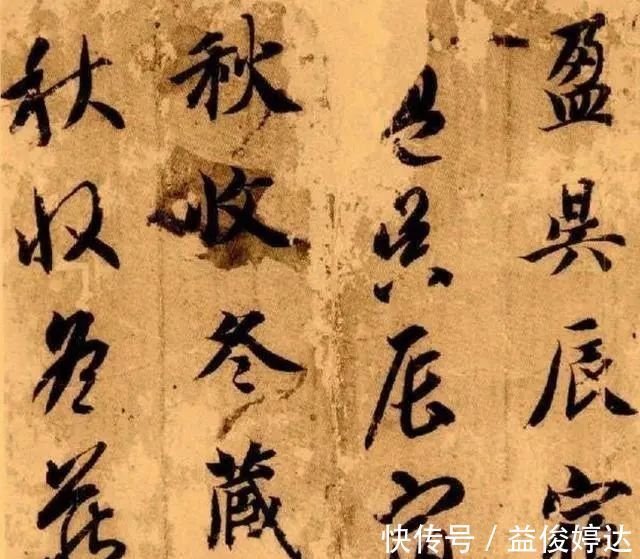 盈昃辰
盈昃辰
秋收冬藏
秋收冬藏
快传号 / 益俊婷达